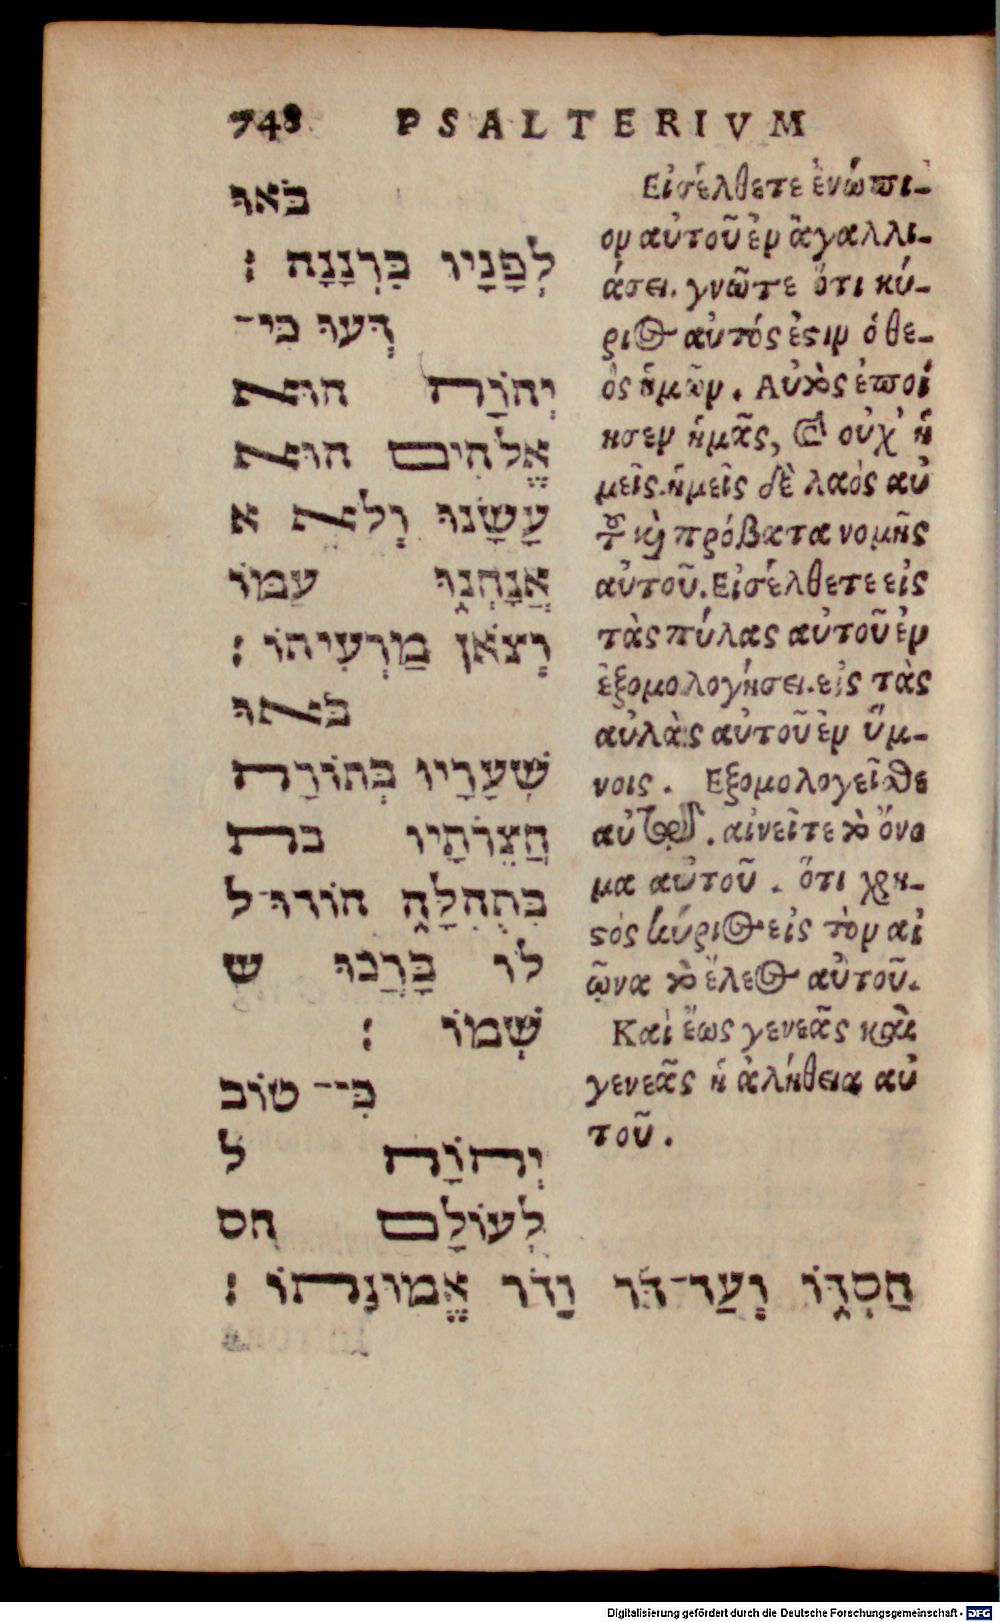 748 PSALTERIVM
בֹּאוּ
לְפָנָיו בִּרְנָנָה :
דְּעוּ כִּי־
יְהוָֹה הוּא
אֱלֹהִים הוּא
עָשָׂנוּ וְלֹא א
אֲנַחְנוּ עַמּוֹ
וְצֹאן מַרְעִיתוֹ :
בֹּאוּ
שְׁעָרָיו בְּתוֹרָה
חֲצֵרֹתָיו בת
בִּתְהִלָּה הוֹדוּ־ל
לוֹ בָּרֲכוּ ש
שְׁמוֹ :
כִּי־ טוֹב
יְהוָֹה ל
לְעוֹלָם חס
חַסְדּוֹ וְעַד־דֹּר וָדֹר אֱמוּנָתוֹ :
Εἰσέλθετε ἐνώπι-
ον αὐτοῦ ἐν ἀγαλλι-
άσει. γνῶτε ὅτι κύ-
ριος αὐτός ἐστιν ὁ θε-
ὸς ἡμῶν. Αὐτὸς ἐποί
ησεν ἡμᾶς, καὶ οὐχ᾽ ἡ
μεῖς. ἡμεῖς δὲ λαὸς αὐ
τοῦ καὶ πρόβατα νομῆς
αὐτοῦ. Εἰσέλθετε εἰς
τὰς πύλας αὐτοῦ ἐν
ἐξομολογήσει. εἰς τὰς
αὐλὰς αὐτοῦ ἐν ὕμ-
νοις. Εξομολογεῖσθε
αὐτῷ. αἰνεῖτε τὸ ὄνο
μα αὐτοῦ. ὅτι χρη-
στὸς κύριος εἰς τὸν αἰ
ῶνα τὸ ἔλεος αὐτοῦ.
Καὶ ἕως γενεᾶς καὶ
γενεᾶς ἡ ἀλήθεια αὐ
τοῦ.
Digitalisierung gefördert durch die Deutsche Forschungsgemeinschaft - DFG